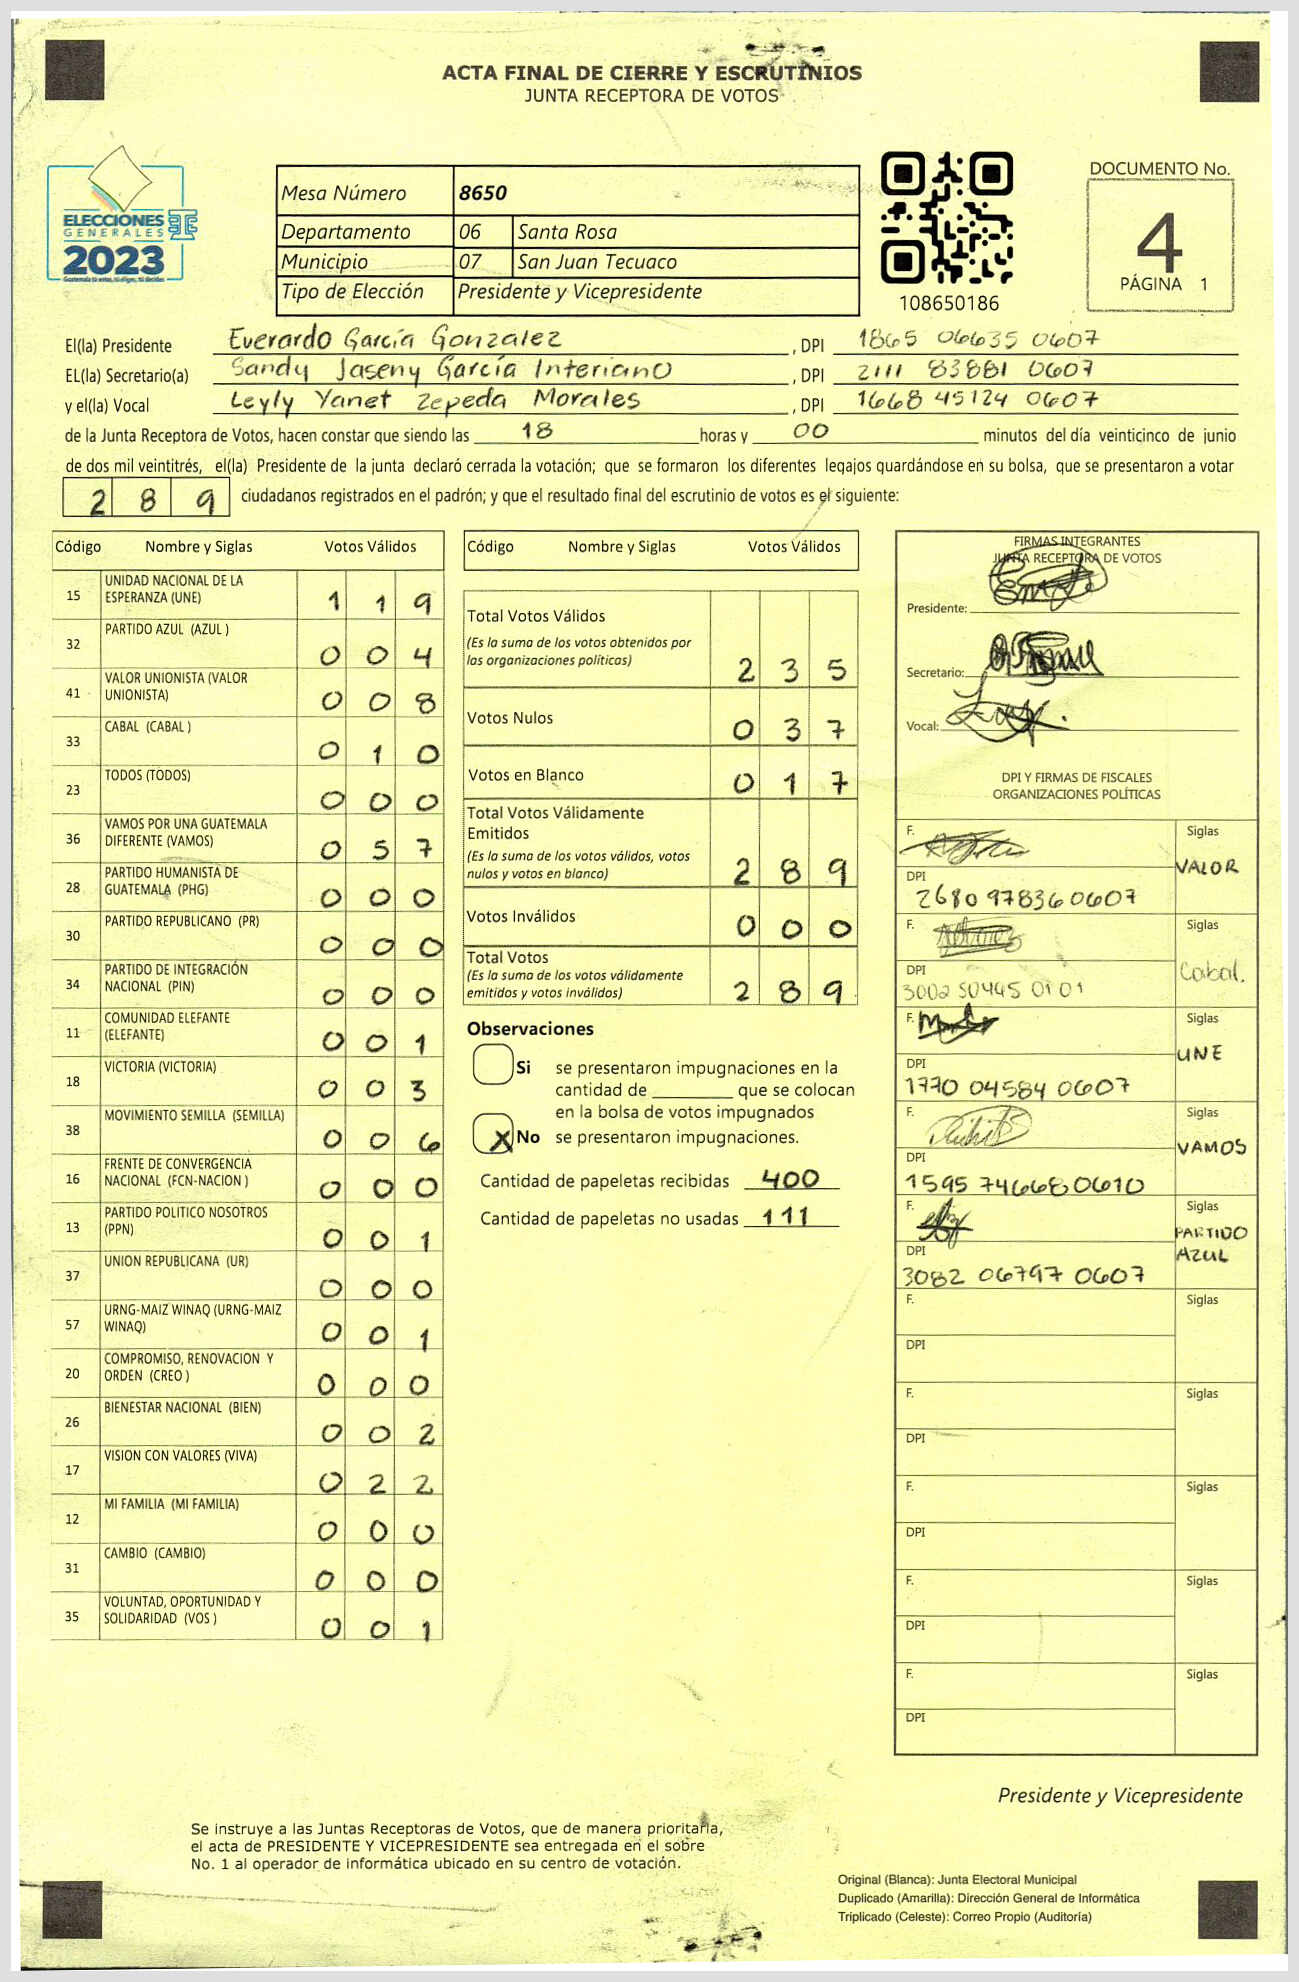 ACTA FINAL DE CIERRE Y ESCRUTINIOS
JUNTA RECEPTORA DE VOTOS
ELECCIONES
GENERALES
2023
Guatemala tú votas, tú eliges, tú decides
Mesa Número 8650
Departamento 06 Santa Rosa
Municipio 07 San Juan Tecuaco
Tipo de Elección Presidente y Vicepresidente
108650186
DOCUMENTO No.
4
PÁGINA 1
El(la) Presidente Everardo García Gonzalez , DPI 1865 06635 0607
EL(la) Secretario(a) Sandy Jaseny García Interiano , DPI 2111 83881 0607
y el(la) Vocal Leyly Yanet Zepeda Morales , DPI 1668 45124 0607
de la Junta Receptora de Votos, hacen constar que siendo las 18 horas y 00 minutos del día veinticinco de junio
de dos mil veintitrés, el(la) Presidente de la junta declaró cerrada la votación; que se formaron los diferentes legajos guardándose en su bolsa, que se presentaron a votar
2 8 9 ciudadanos registrados en el padrón; y que el resultado final del escrutinio de votos es el siguiente:
Código Nombre y Siglas Votos Válidos
15 UNIDAD NACIONAL DE LA ESPERANZA (UNE) 1 1 9
32 PARTIDO AZUL (AZUL ) 0 0 4
41 VALOR UNIONISTA (VALOR UNIONISTA) 0 0 8
33 CABAL (CABAL ) 0 1 0
23 TODOS (TODOS) 0 0 0
36 VAMOS POR UNA GUATEMALA DIFERENTE (VAMOS) 0 5 7
28 PARTIDO HUMANISTA DE GUATEMALA (PHG) 0 0 0
30 PARTIDO REPUBLICANO (PR) 0 0 0
34 PARTIDO DE INTEGRACIÓN NACIONAL (PIN) 0 0 0
11 COMUNIDAD ELEFANTE (ELEFANTE) 0 0 1
18 VICTORIA (VICTORIA) 0 0 3
38 MOVIMIENTO SEMILLA (SEMILLA) 0 0 6
16 FRENTE DE CONVERGENCIA NACIONAL (FCN-NACION ) 0 0 0
13 PARTIDO POLITICO NOSOTROS (PPN) 0 0 1
37 UNION REPUBLICANA (UR) 0 0 0
57 URNG-MAIZ WINAQ (URNG-MAIZ WINAQ) 0 0 1
20 COMPROMISO, RENOVACION Y ORDEN (CREO ) 0 0 0
26 BIENESTAR NACIONAL (BIEN) 0 0 2
17 VISION CON VALORES (VIVA) 0 2 2
12 MI FAMILIA (MI FAMILIA) 0 0 0
31 CAMBIO (CAMBIO) 0 0 0
35 VOLUNTAD, OPORTUNIDAD Y SOLIDARIDAD (VOS ) 0 0 1
Código Nombre y Siglas Votos Válidos
Total Votos Válidos
(Es la suma de los votos obtenidos por
las organizaciones políticas) 2 3 5
Votos Nulos 0 3 7
Votos en Blanco 0 1 7
Total Votos Válidamente
Emitidos
(Es la suma de los votos válidos, votos
nulos y votos en blanco) 2 8 9
Votos Inválidos 0 0 0
Total Votos
(Es la suma de los votos válidamente
emitidos y votos inválidos) 2 8 9
Observaciones
Si se presentaron impugnaciones en la
cantidad de ________ que se colocan
en la bolsa de votos impugnados
X No se presentaron impugnaciones.
Cantidad de papeletas recibidas 400
Cantidad de papeletas no usadas 111
FIRMAS INTEGRANTES
JUNTA RECEPTORA DE VOTOS
Presidente:
Secretario:
Vocal:
DPI Y FIRMAS DE FISCALES
ORGANIZACIONES POLÍTICAS
F. Siglas
VALOR
DPI
2680 97836 0607
F. Siglas
Cabal.
DPI
3002 50445 0101
F. Siglas
UNE
DPI
1770 04584 0607
F. Siglas
VAMOS
DPI
1595 74668 0610
F. Siglas
PARTIDO
AZUL
DPI
3082 06797 0607
F. Siglas
DPI
F. Siglas
DPI
F. Siglas
DPI
F. Siglas
DPI
F. Siglas
DPI
Presidente y Vicepresidente
Se instruye a las Juntas Receptoras de Votos, que de manera prioritaria,
el acta de PRESIDENTE Y VICEPRESIDENTE sea entregada en el sobre
No. 1 al operador de informática ubicado en su centro de votación.
Original (Blanca): Junta Electoral Municipal
Duplicado (Amarilla): Dirección General de Informática
Triplicado (Celeste): Correo Propio (Auditoría)